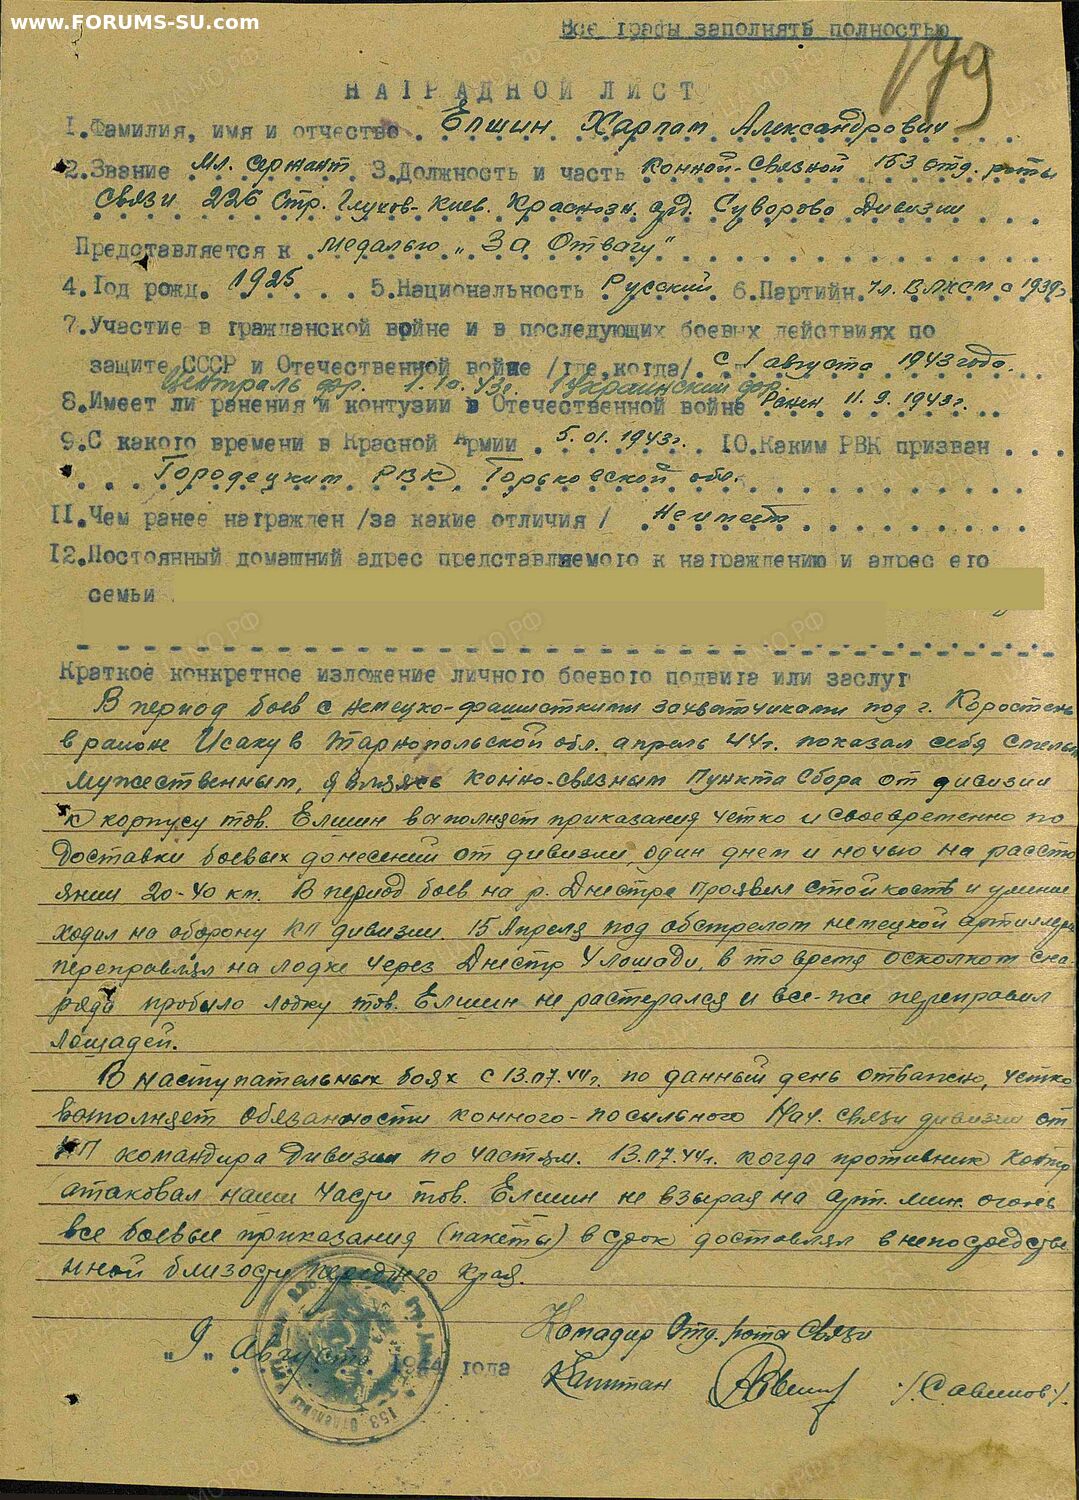 www.FORUMS-SU.com
Все графы заполнять полностью
НАГРАДНОЙ ЛИСТ
1.Фамилия, имя и отчество . Елшин Харлам Александрович
2.Звание Мл. сержант 3.Должность и часть Конной-Связной 153 отд. роты
Связи 226 Стр. Глухов-Киев. Краснозн. орд. Суворова Дивизии
Представляется к медалью „За Отвагу"
4.Год рожд. 1925 5.Национальность Русский 6.Партийн. Чл. ВЛКСМ с 1939г
7.Участие в гражданской войне и в последующих боевых действиях по
защите СССР и Отечественной войне /где,когда/. с 1 августа 1943 года.
Централь фр. 1.10.43г. 1 Украинский фр.
8.Имеет ли ранения и контузии в Отечественной войне Ранен 11.9.1943г.
9.С какого времени в Красной Армии . 5.01.1943г. 10.Каким РВК призван . . .
Городецким РВК, Горьковской обл.
11.Чем ранее награжден /за какие отличия / Не имеет
12.Постоянный домашний адрес представляемого к награждению и адрес его
семьи
Краткое конкретное изложение личного боевого подвига или заслуг
В период боев с немецко-фашисткими захватчиками под г. Коростень
в районе Исакув Тарнопольской обл. апрель 44г. показал себя смелым
мужественным, являясь конно-связным Пункта Сбора от дивизии
к корпусу тов. Елшин выполняет приказания четко и своевременно по
доставки боевых донесений от дивизии, один днем и ночью на рассто
янии 20-40 км. В период боев на р. Днестре проявил стойкость и умение
ходил на оборону КП дивизии. 15 Апреля под обстрелом немецкой артиллерии
переправлял на лодке через Днестр 4 лошади, в то время осколком сна-
ряда пробило лодку тов. Елшин не растерался и все-же переправил
лошадей.
В наступательных боях с 13.07.44г. по данный день отважно, четко
выполняет обязанности конного-посыльного Нач. связи дивизии от
КП командира Дивизии по частям. 13.07.44г. когда противник контр
атаковал наши части тов. Елшин не взирая на арт. мин. огонь
все боевые приказания (пакеты) в срок доставлял в непосредстве
нной близости переднего края.
Командир Отд. рота Связи
„9„ Августа 1944 года
Капитан /Савинов/.